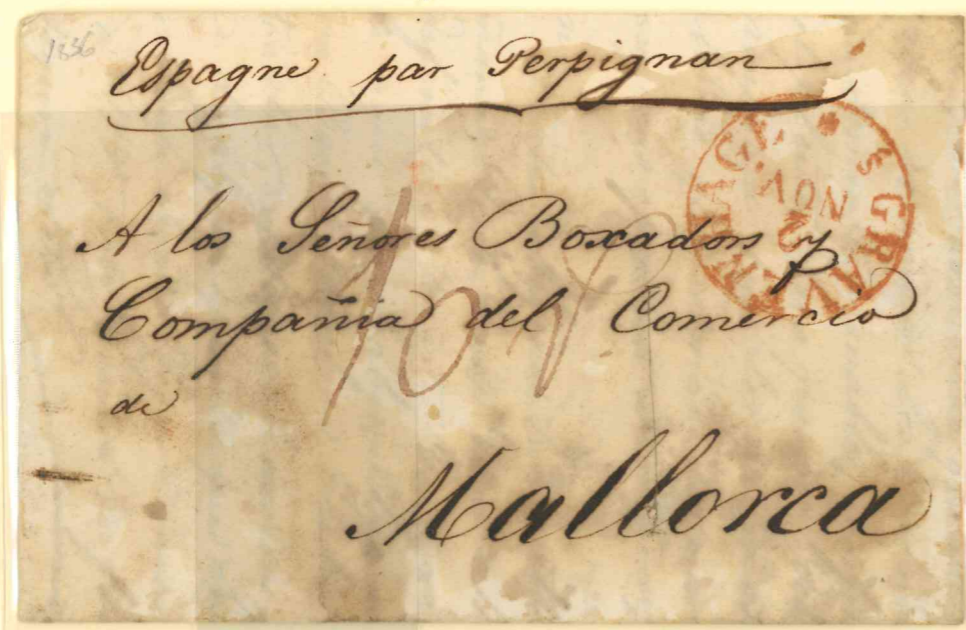 1836
Espagne par Perpignan
'S GRAVENHAGE
2
NOV.
A los Señores Boxadors y
Compañia del Comercio
de
Mallorca